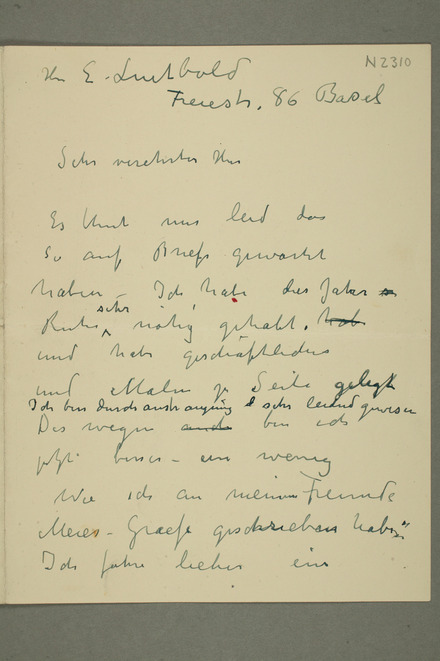 N2310
Hrn E. Luitbold
Freiestr. 86 Basel
Sehr verehrter Herr
Es thut mir leid das
Sie auf Briefe gewartet
haben – Ich habe dies Jahr
Ruhe sehr nötig gehabt.
und habe geschäftliches
und Malen zu Seite gelegt
Ich bin durch anstrengung sehr leidend gewesen
Des wegen bin ich
jetzt besser – ein wenig
Wie ich an meinen Freunde
Meier-Graefe geschrieben habe
Ich fahre lieber ein